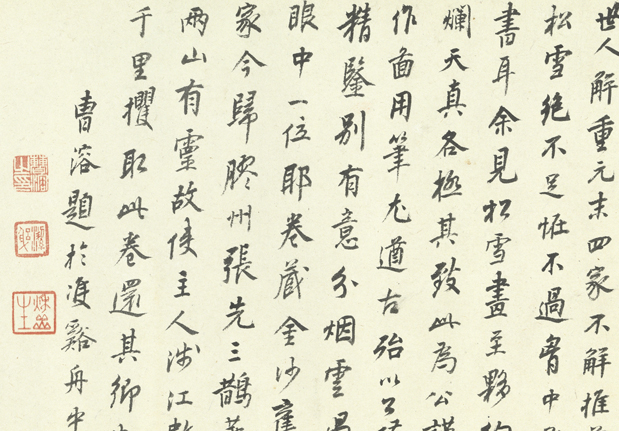 世人解重元末四家不解推
松雪絶不足怪不過胷中
書耳余見松雪畫至夥
爛天真各極其致此爲公
作畫用筆尤遒古殆以
精鑒别有意分烟雲
眼中一位耶卷藏金沙
家今歸膠州張先三鵲
兩山有靈故使主人涉江
千里攫取此卷還其鄉
曹溶題於渡谿舟中